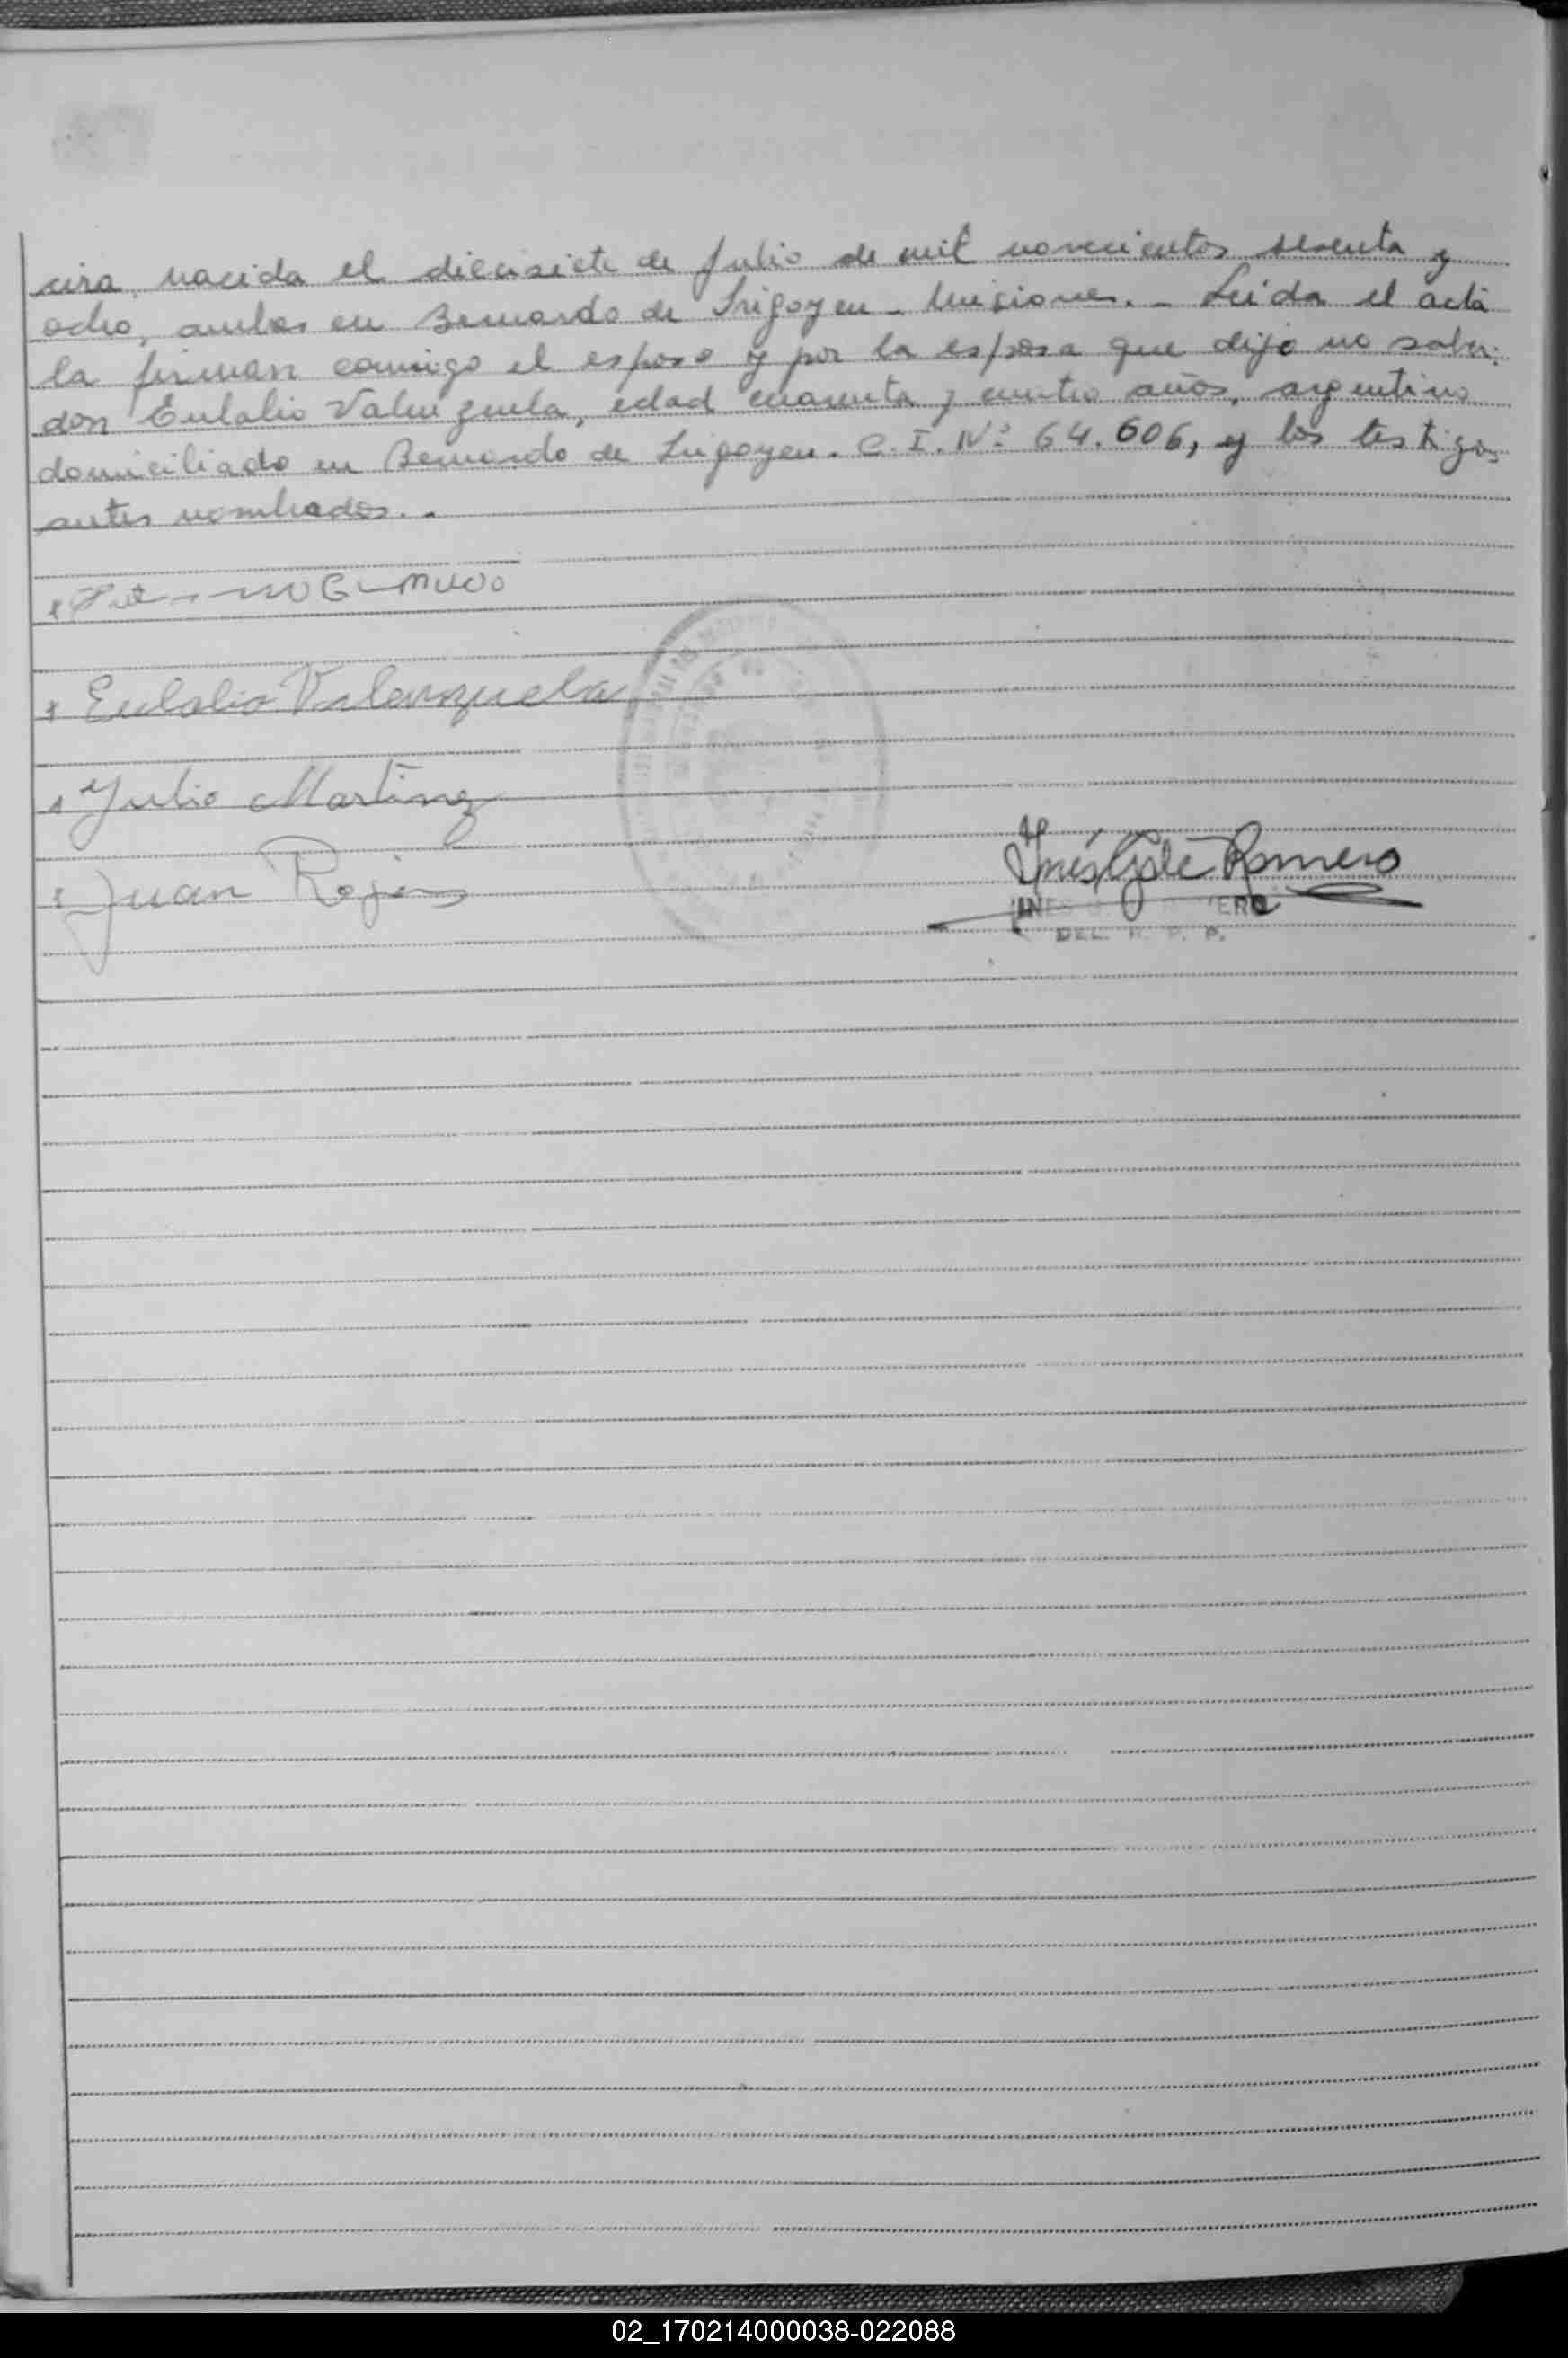 cira, nacida el diecisiete de Julio de mil novecientos sesenta y
ocho, ambas en Bernardo de Irigoyen - Misiones. - Leída el acta
la firman conmigo el esposo y por la esposa que dijo no saber:
don Eulalio Valenzuela, edad cuarenta y cuatro años, argentino
domiciliado en Bernardo de Irigoyen. C.I. Nº 64.606, y los testigos
antes nombrados. -
Eulalio Valenzuela
Julio Martinez
Juan Rojas
Romero
DEL. R. P. P.
02_170214000038-022088